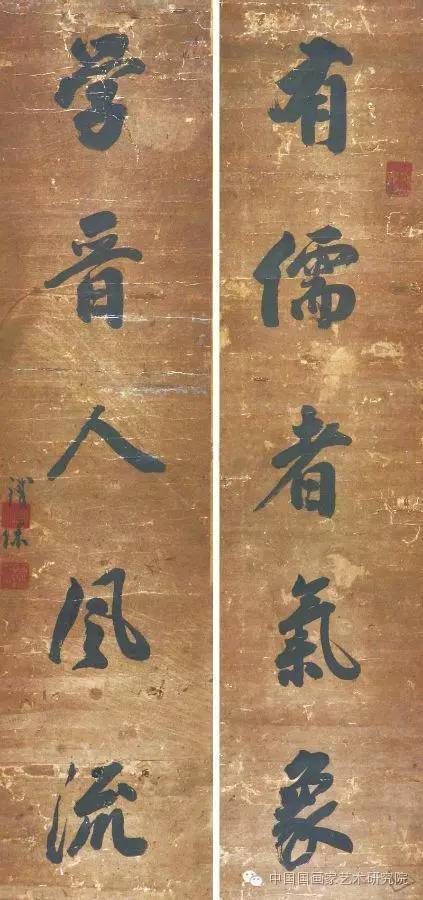 有儒者氣象
学晋人風流
铁保
中国国画家艺术研究院